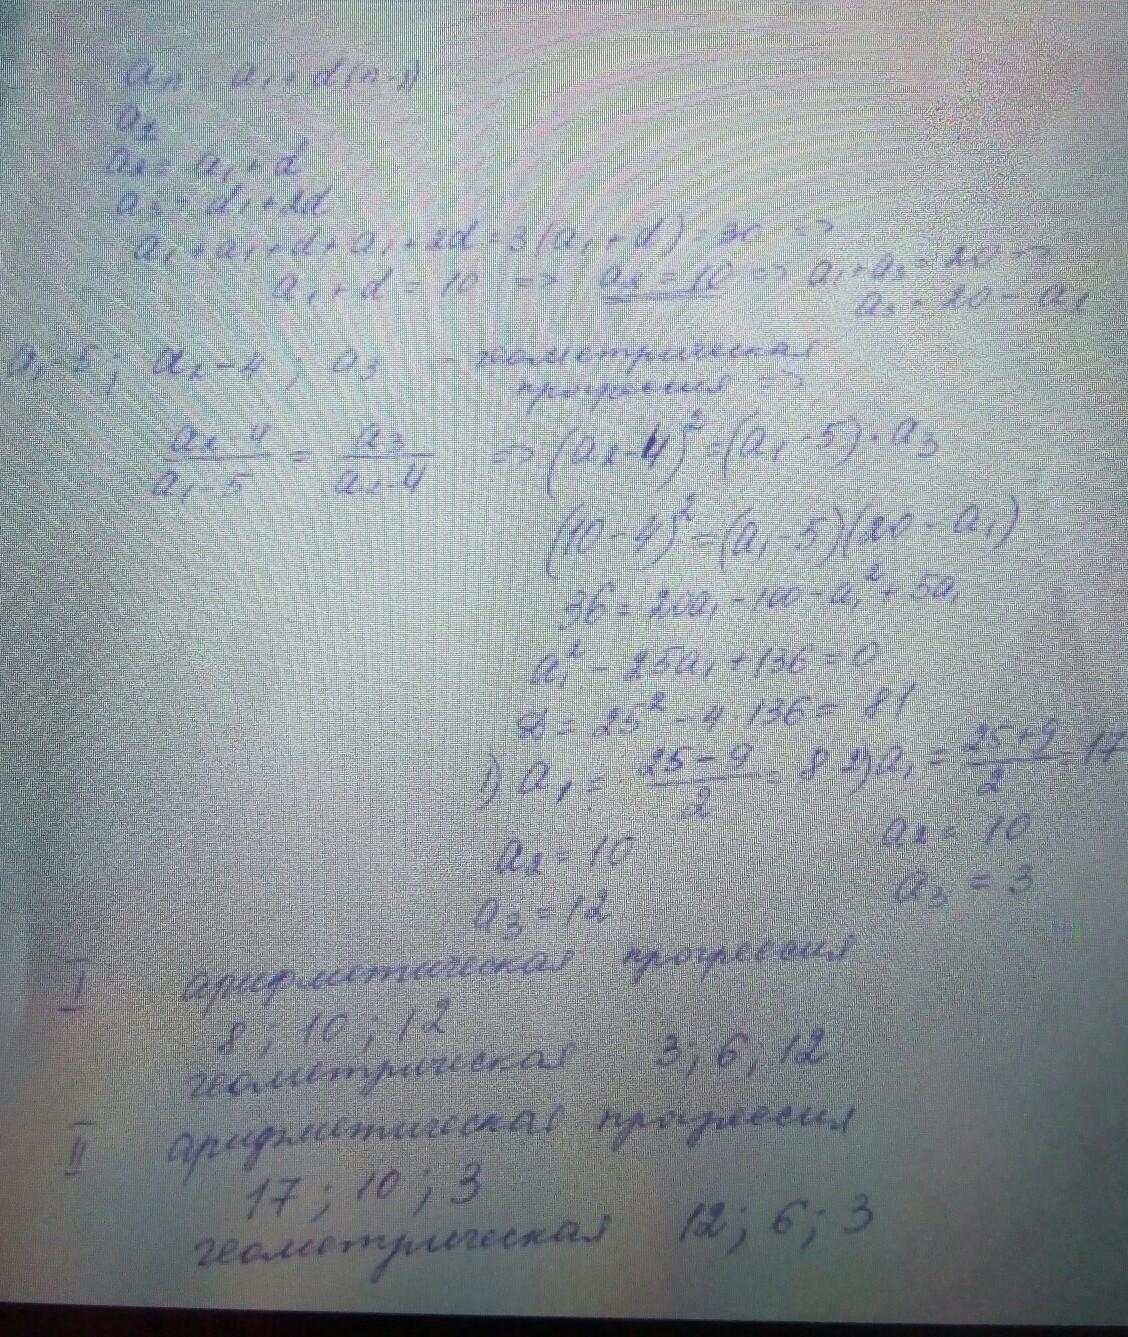 aₙ = a₁ + d(n-1)
a₂
a₂ = a₁ + d
a₃ = a₁ + 2d
a₁ + a₁ + d + a₁ + 2d = 3(a₁ + d) = 30 =>
a₁ + d = 10 => a₂ = 10 => a₁ + a₃ = 20 =>
a₃ = 20 - a₁
a₁-5; a₂-4; a₃ - геометрическая
прогрессия =>
(a₂-4)/(a₁-5) = a₃/(a₂-4) => (a₂-4)² = (a₁-5)·a₃
(10-4)² = (a₁-5)(20-a₁)
36 = 20a₁ - 100 - a₁² + 5a₁
a₁² - 25a₁ + 136 = 0
D = 25² - 4·136 = 81
1) a₁ = (25-9)/2 = 8 2) a₁ = (25+9)/2 = 17
a₂ = 10 a₂ = 10
a₃ = 12 a₃ = 3
I арифметическая прогрессия
8; 10; 12
геометрическая 3; 6; 12
II арифметическая прогрессия
17; 10; 3
геометрическая 12; 6; 3